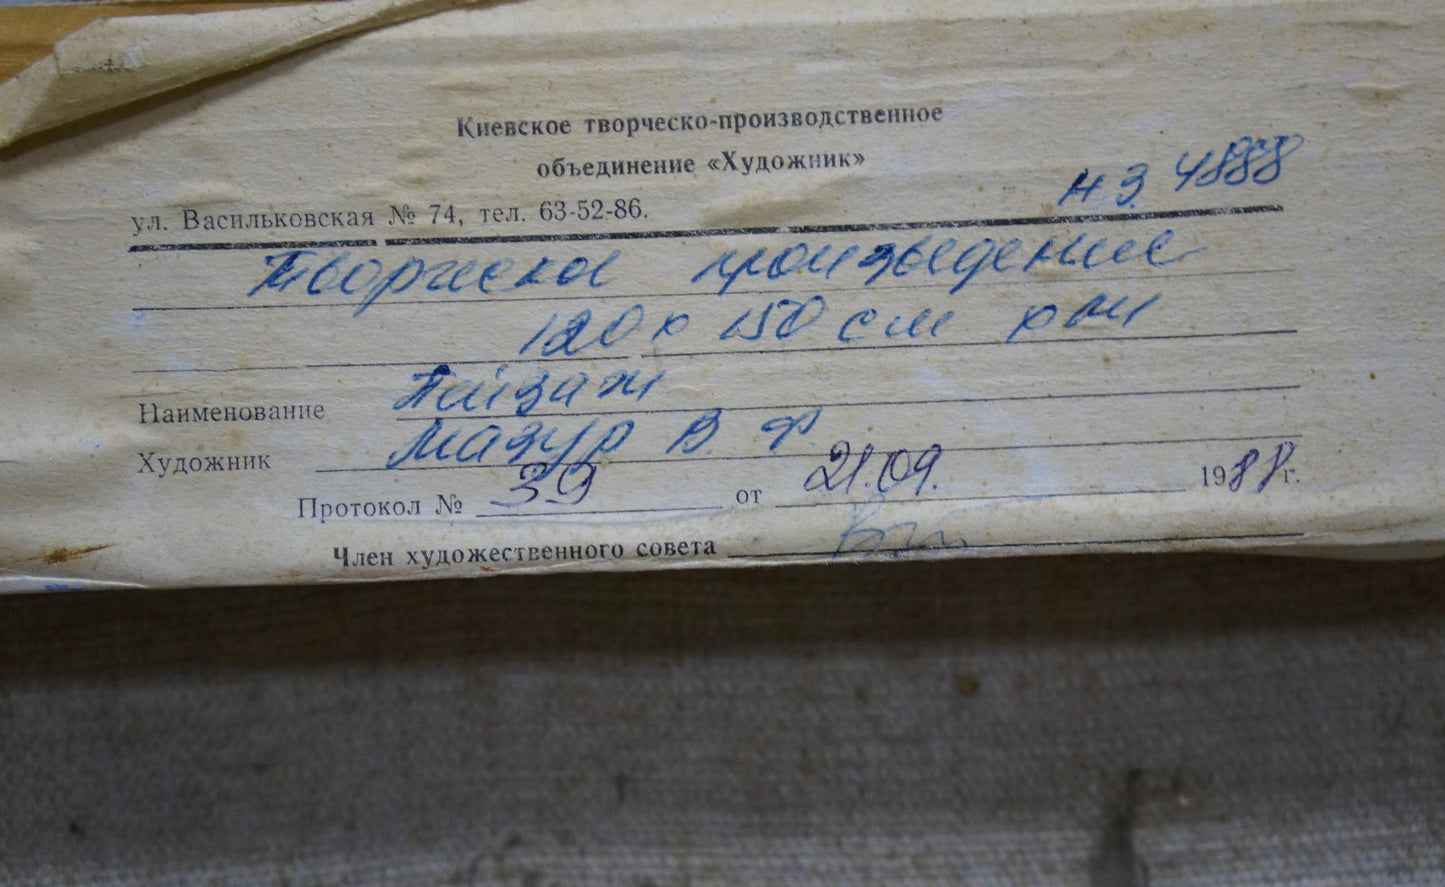 Киевское творческо-производственное
объединение «Художник»
н.з. 4888
ул. Васильковская № 74, тел. 63-52-86.
Творческое произведение
120 х 150 см хм
Наименование Пейзаж
Художник Мазур В. Ф
Протокол № 39 от 21.09. 1988 г.
Член художественного совета